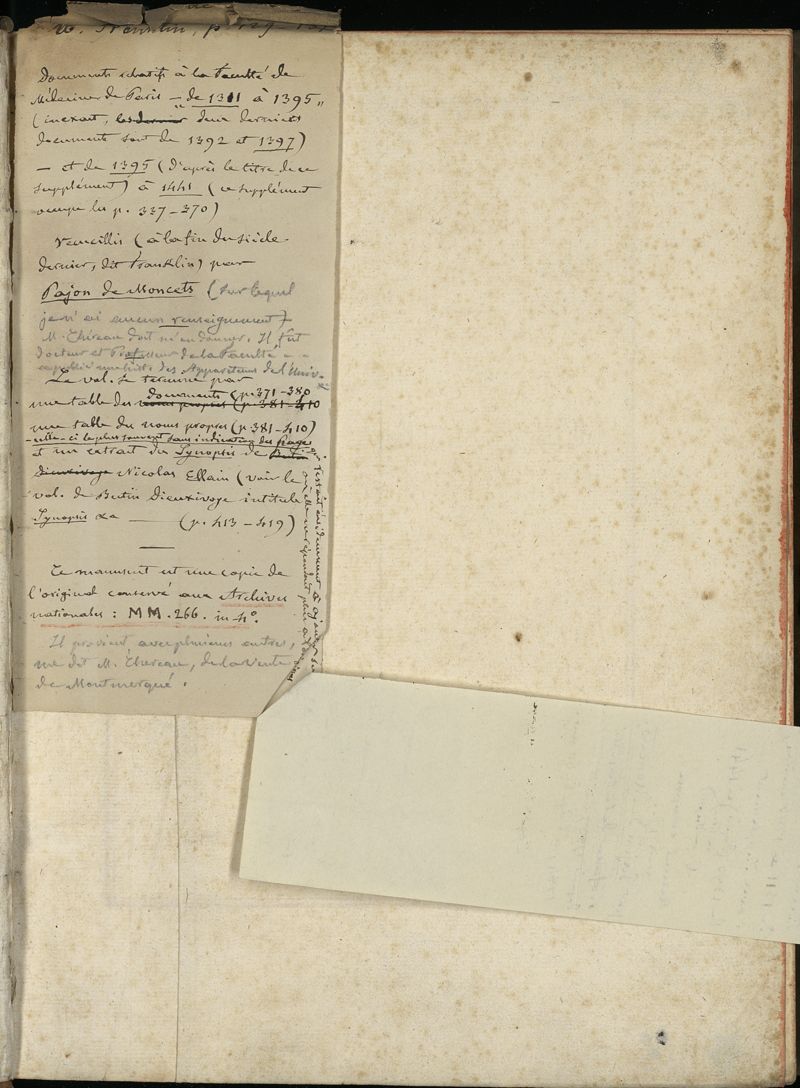 v. Franklin, p
Documents relatifs à la Faculté de
Médecine de Paris — de 1311 à 1395 „
(inexact, les dernier deux derniers
documents sont de 1392 et 1397)
— et de 1395 (d'après le titre de ce
supplément) à 1441 (ce supplément
occupe les p. 337-370)
recueillis (à la fin du siècle
dernier, dit Franklin) par
Pajon de Moncets (sur lequel
je n'ai aucun renseignement)
M. Chéreau doit m'en donner. Il fut
docteur et Professeur de la Faculté
a publié une liste des Appariteurs de l'Univ.
Le vol. se termine par
documents (p. 371-380
une table des noms propres (p. 381-410
une table des noms propres (p. 381-410)
celle-ci le plus souvent sans indication des Pages
et un extrait du Synopsis de
Dieuxivoye Nicolas Ellain (voir le
vol. de Bertin Dieuxivoye intitulé
Synopsis &a — (p. 413-419)
Ce manuscrit est une copie de
l'original conservé aux Archives
nationales : MM. 266. in-4°.
Il provient avec plusieurs autres,
me dit M. Chéreau, de la vente
de Montmerqué.